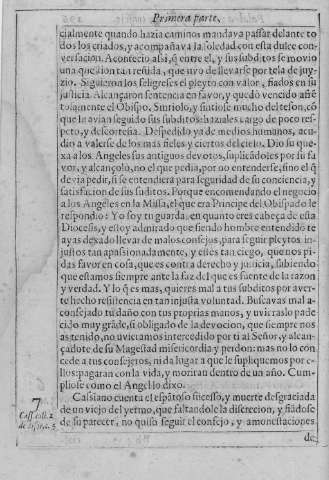 Primera parte.
cialmente quando hazia camino: mandava passar delante to
dos los criados, y acompañava la soledad con esta dulce con
versacion. Acontecio assi, q̃ entre el, y sus subditos se movio
una question tan reñida, que uvo de llevarse por tela de juy-
zio. Siguieron los feligreses el pleyto con valor, fiados en su
justicia. Alcançaron sentencia en favor, y quedò vencido afrẽ
tosamente el Obispo. Sintiolo, y sintiose mucho del teson, cõ
que le avian seguido sus subditos: hazial es cargo de poco res-
peto, y descortesia. Despedido ya de medios humanos, acu-
dio a valerse de los mas fieles y ciertos del cielo. Dio su que-
xa a los Angeles sus antiguos devotos, suplicãdoles por su fa
vor, y alcançolò, no el que pedia, por no entenderse, sino el q̃
devia pedir, si se entendiera para seguridad de su conciencia, y
satisfacion de sus suditos. Porque encomendando el negocio
a los Angeles en la Missa, el que era Principe del Obispado le
respondio: Yo soy tu guarda, en quanto eres cabeça de esta
Diocesis, y estoy admirado que siendo hombre entendido te
ayas dexado llevar de malos consejos, para seguir pleytos in-
justos tan apassionadamente, y estès tan ciego, que nos pi-
das favor en cosa, que es contra derecho y justicia, sabiendo
que estamos siempre ante la faz del que es fuente de la razon
y verdad. Y lo q̃ es mas, quieres mal a tus subditos por aver-
te hecho resistencia en tan injusta voluntad. Buscavas mal a-
consejado tu daño con tus proprias manos, y uvieraslo pade
cido muy grãde, si obligado de la devocion, que siempre nos
as tenido, no uvieramos intercedido por ti al Señor, y alcan-
çadote de su Magestad misericordia y perdon: mas no lo con
cede a tus consejeros, ni da lugar a que le supliquemos por e-
llos: pagaran con la vida, y moriran dentro de un año. Cum-
pliose como el Angel lo dixo.
7 Cassiano cuenta el espãtoso sucesso, y muerte desgraciada
Cass. coll. 2. de un viejo del yermo, que faltandole la discrecion, y fiãdose
de su parecer, no quiso seguir el consejo, y amonestaciones
de